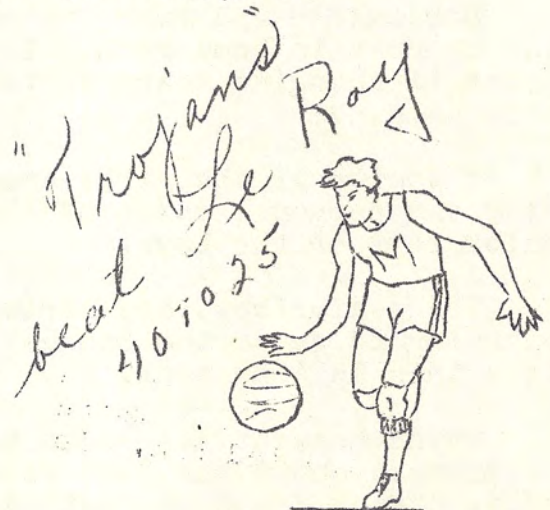 "Trojans"
beat Le Roy
40 to 25